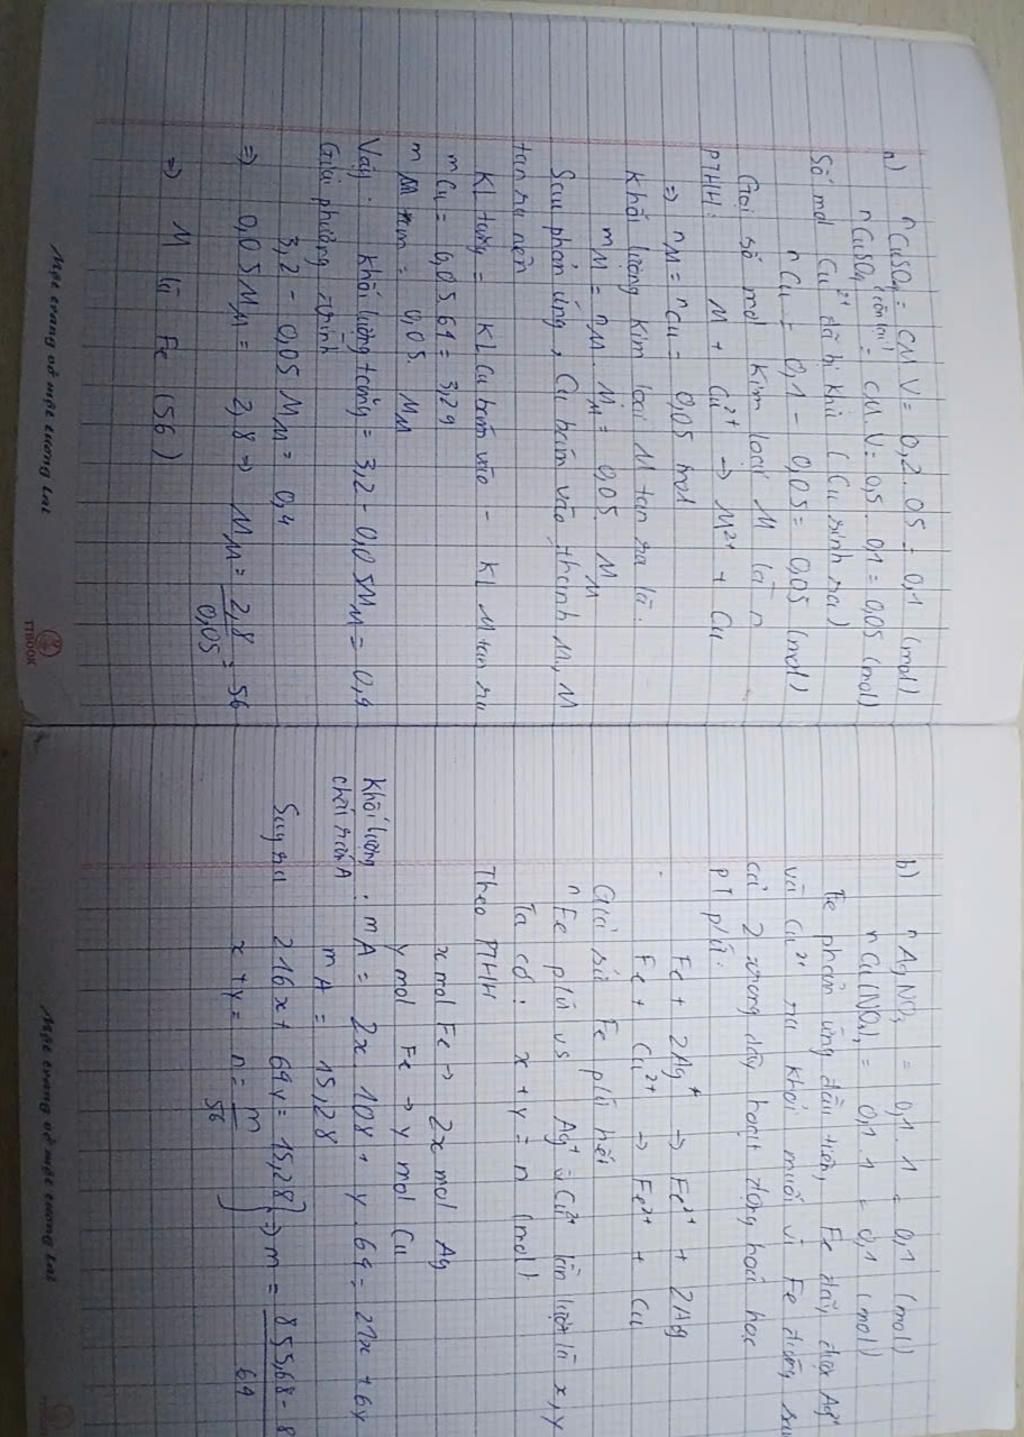 a) nCuSO₄ = CM V = 0,2 . 05 = 0,1 (mol)
nCuSO₄ (còn lại) = CM.V = 0,5 . 0,1 = 0,05 (mol)
Số mol Cu²⁺ đã bị khử (Cu sinh ra)
nCu = 0,1 - 0,05 = 0,05 (mol)
Gọi số mol kim loại M là n
PTHH: M + Cu²⁺ → M²⁺ + Cu
⇒ nM = nCu = 0,05 mol
Khối lượng kim loại M tan ra là:
mM = nM . MM = 0,05 . MM
Sau phản ứng, Cu bám vào thanh M, M
tan ra nên
KL tăng = KL Cu bám vào - KL M tan ra
mCu = 0,05.64 = 3,2g
mM = 0,05. MM
Vậy: khối lượng tăng = 3,2 - 0,05MM = 0,4
Giải phương trình
3,2 - 0,05MM = 0,4
⇒ 0,05MM = 2,8 ⇒ MM = 2,8/0,05 = 56
⇒ M là Fe (56)
Mặc trang vở mặc tương lai
ITBOOK
b) nAgNO₃ = 0,1 . 1 = 0,1 (mol)
nCu(NO₃)₂ = 0,1 . 1 = 0,1 (mol)
Fe phản ứng đầu tiên, Fe đẩy được Ag⁺
và Cu²⁺ ra khỏi muối vì Fe đứng
cả 2 trong dãy hoạt động hoá học
PT pứ:
Fe + 2Ag⁺ → Fe²⁺ + 2Ag
Fe + Cu²⁺ → Fe²⁺ + Cu
Giả sử Fe pứ hết
nFe pứ vs Ag⁺ và Cu²⁺ lần lượt là x, y
Ta có: x + y = n (mol)
Theo PTHH
x mol Fe → 2x mol Ag
y mol Fe → y mol Cu
Khối lượng chất rắn A : mA = 2x . 108 + y . 64 = 21x + 6y
mA = 15,28
Suy ra 216x + 64y = 15,28
x + y = n = m/56 } ⇒ m = 855,68 - 8 / 64
Mặc trang vở mặc tương lai